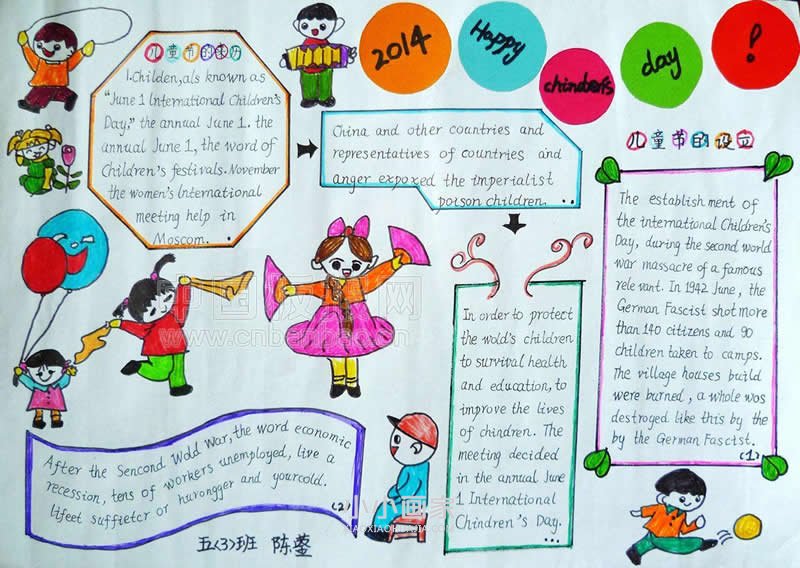 2014
Happy
chinder's
day
!
儿童节的来历
1.Childen,als known as
"June 1 International Children's
Day," the annual June 1. the
annual June 1, the word of
Children's festivals. November
the women's International
meeting help in
Moscom.
China and other countries and
representatives of countries and
anger expoxed the imperialist
poison children.
In order to protect
the wold's children
to survival health
and education, to
improve the lives
of chindren. The
meeting decided
in the annual June
1 International
Chindren's Day.
儿童节的设立
The establish ment of
the international Children's
Day, during the second world
war massacre of a famous
rele vant. In 1942 June, the
German Fascist shot more
than 140 citizens and 90
children taken to camps.
The village houses build
were burned, a whole wos
destroged like this by the
by the German Fascist.
(1)
After the Sencond Wold War, the word economic
recession, tens of workers unemployed, live a
lifeet suffietcr or hurongger and yourcold.
(2)
五(3)班 陈蓥
中国板报网
www.cnbanbao.cn
小小画家
XIAOXIAOHUAJIA.COM